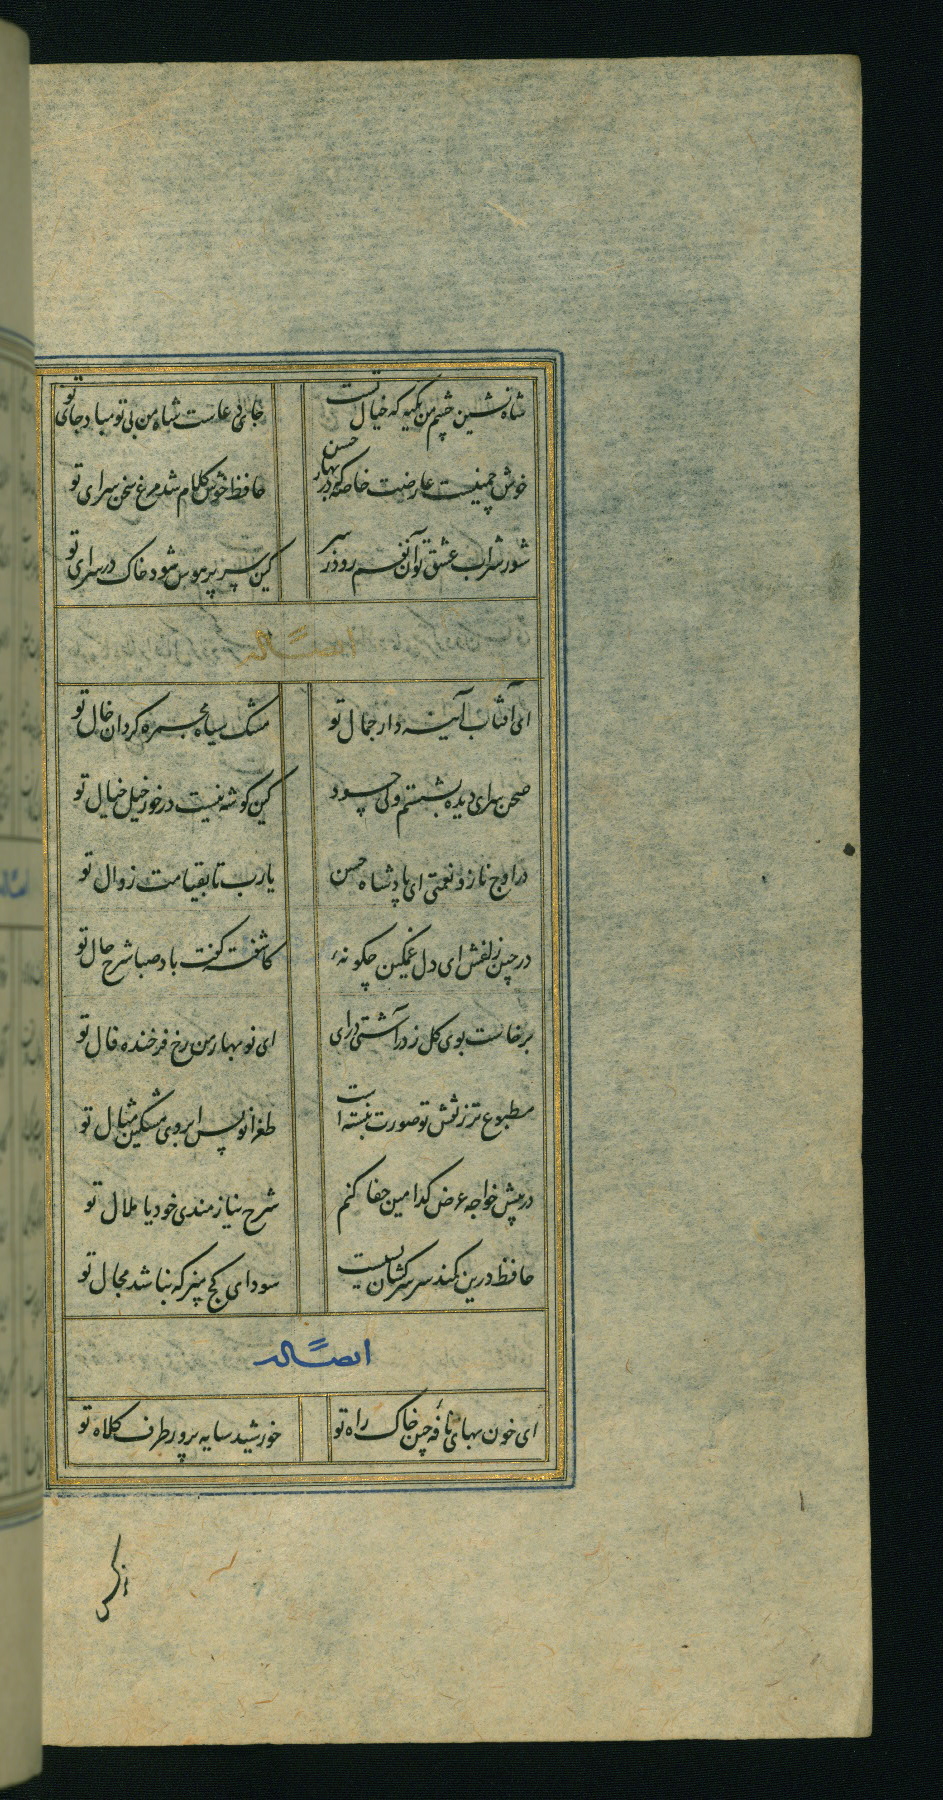 شاه نشین چشم من تکیه که خیال تست جای دعاست شاه من بی تو مباد جای تو
خوش چمنیست عارضت خاصه که در بهار حسن حافظ خوش کلام شد مرغ سخن سرای تو
شور شراب عشق تو آن نفسم رود ز سر کین سر پر هوس شود خاک در سرای تو
ای آفتاب آینه دار جمال تو مشک سیاه مجمره کردان خال تو
صحن سرای دیده بشستم ولی چه سود کین کوشه نیست در خور خیل خیال تو
در اوج ناز و نعمتی ای پادشاه حسن یارب تا بقیامت زوال تو
در چین زلفش ای دل غمکین چکونهٔ کاشفته کفت باد صبا شرح حال تو
برخاست بوی کل ز در آشتی درای ای نو بهار من رخ فرخنده فال تو
مطبوع تر ز نقش تو صورت نبسته است طغرا نویس ابروی مشکین مثال تو
در پیش خواجه عرض کدامین جفا کنم شرح نیازمندی خود یا ملال تو
حافظ درین کمند سر سرکشان بسیست سودای کج مپز که نباشد مجال تو
ایضاً له
ای خون بهای نافهٔ چین خاک راه تو خورشید سایه پرور طرف کلاه تو
نرکس